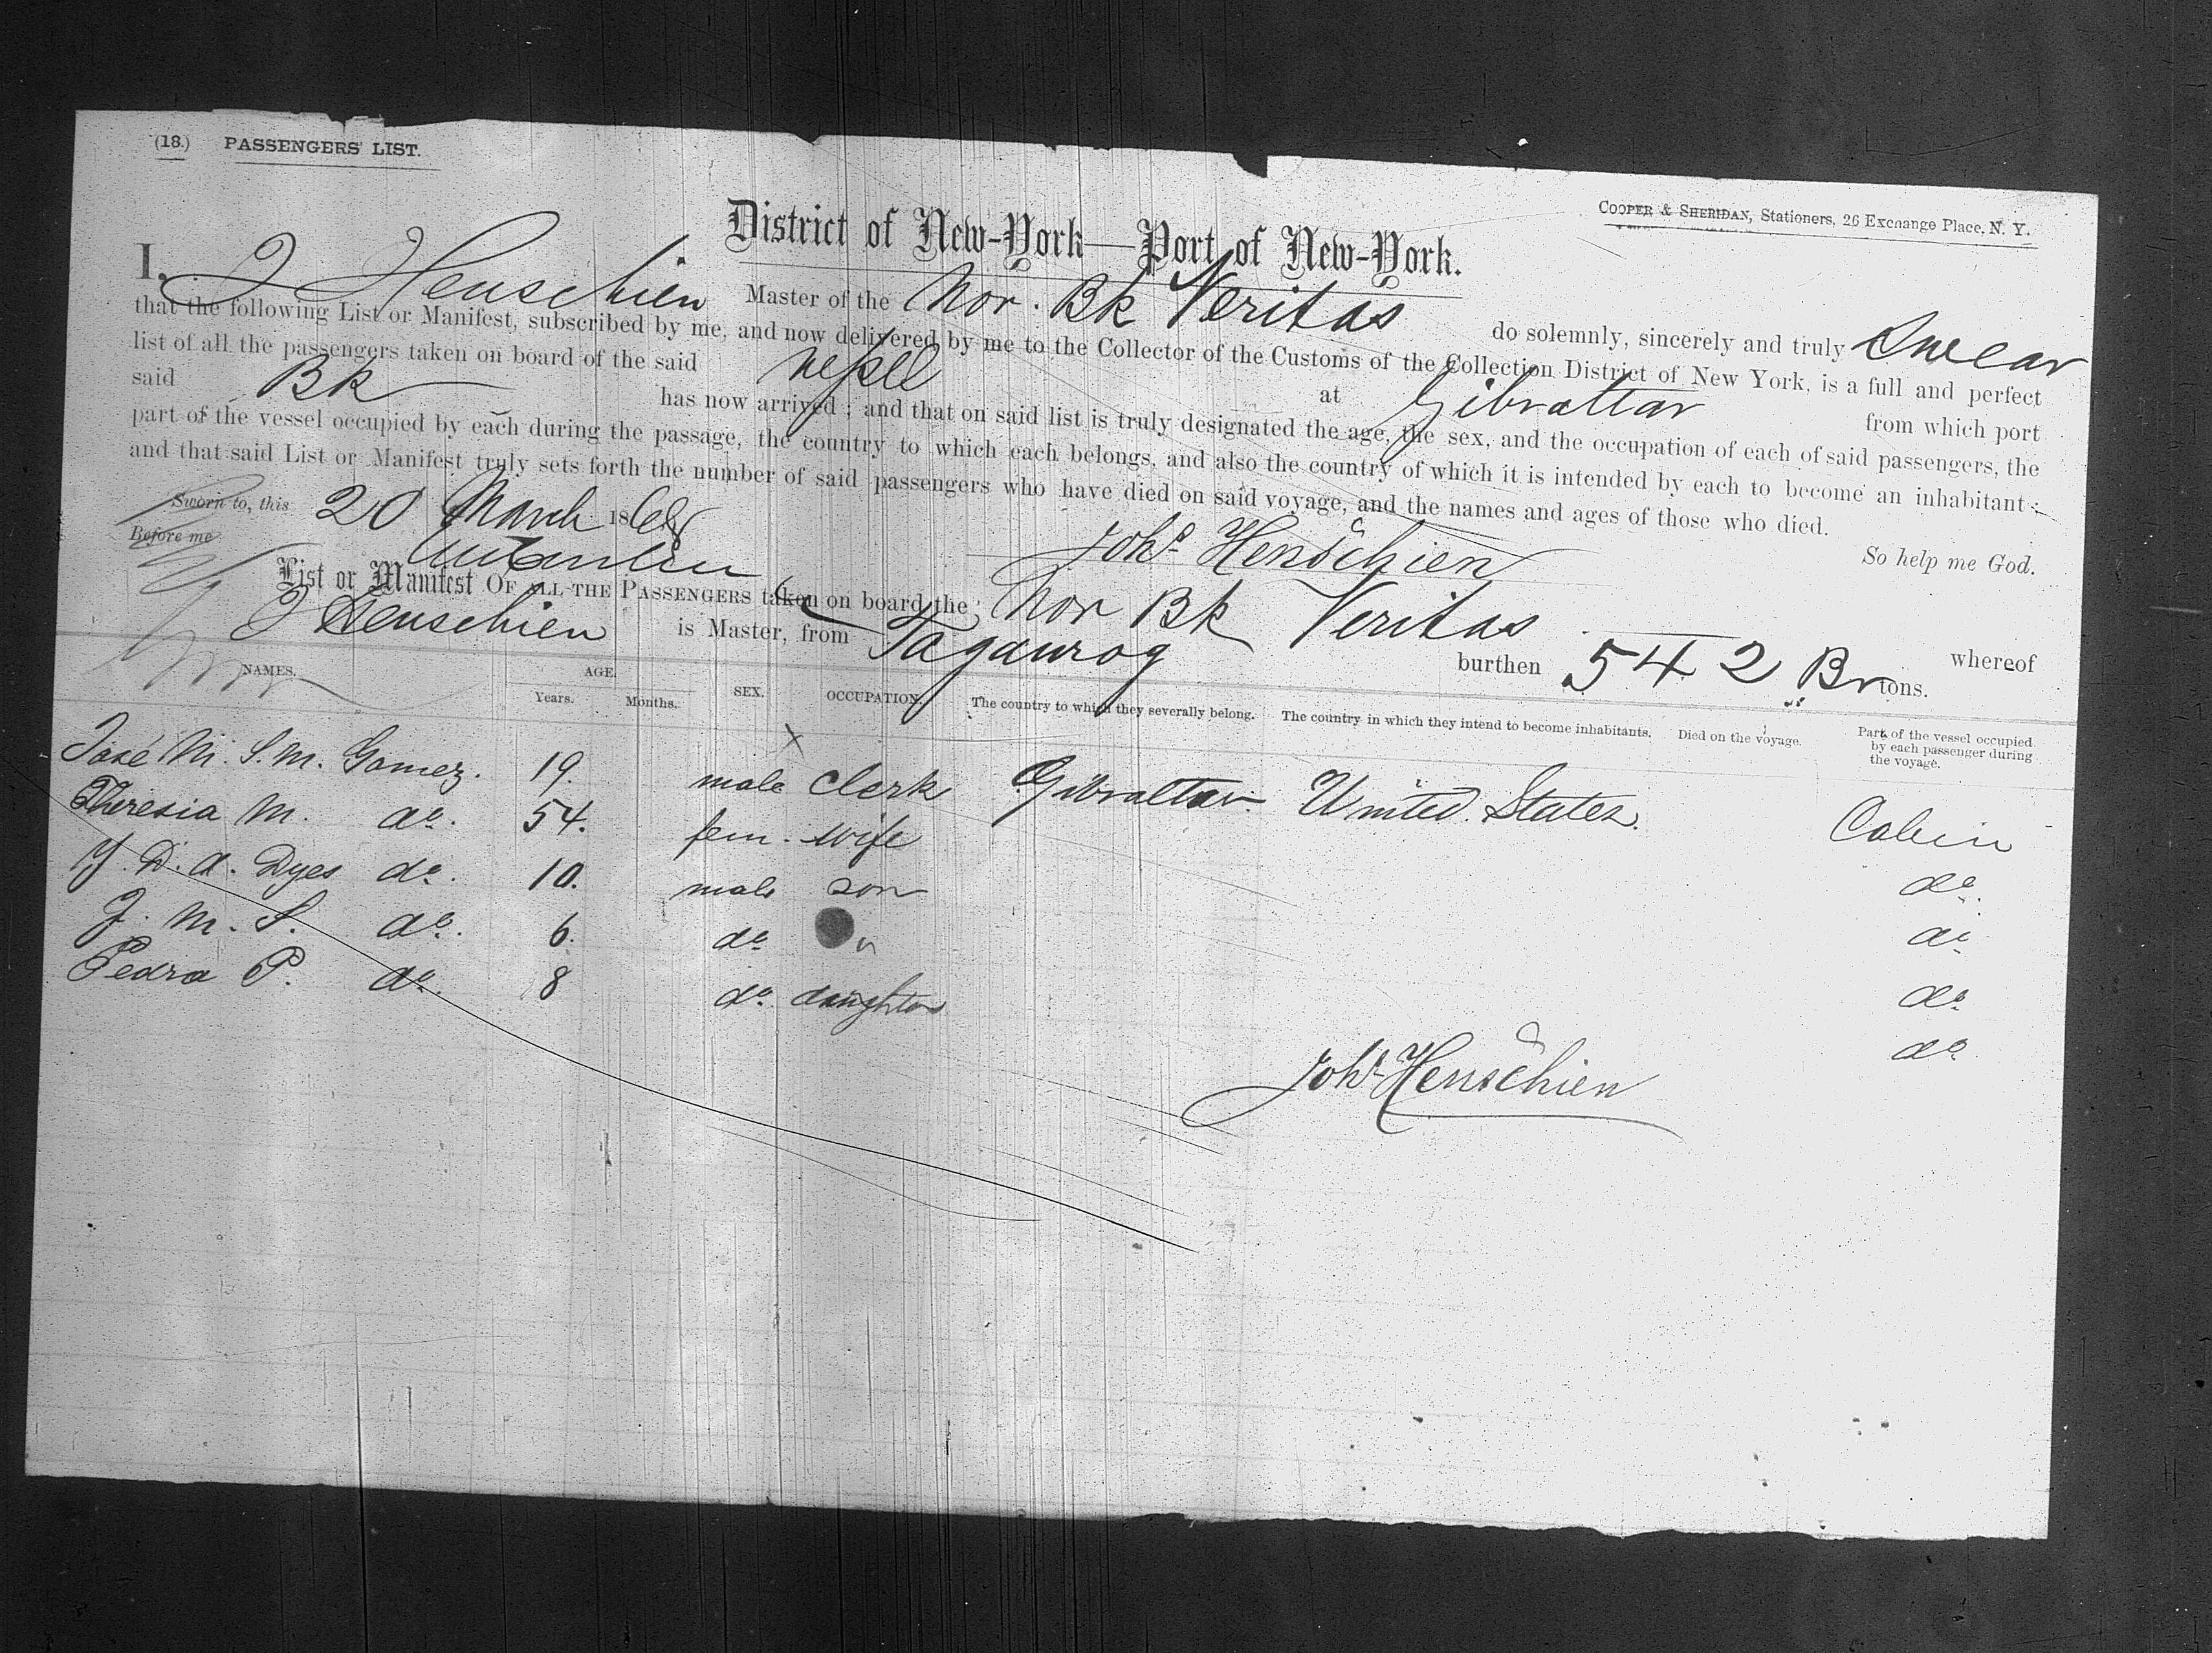 (18.) PASSENGERS' LIST.
COOPER & SHERIDAN, Stationers, 26 Exchange Place, N. Y.
District of New-York—Port of New-York.
I, J Henschien Master of the Nor. Bk Veritas do solemnly, sincerely and truly Swear
that the following List or Manifest, subscribed by me, and now delivered by me to the Collector of the Customs of the Collection District of New York, is a full and perfect
list of all the passengers taken on board of the said at Gibraltar from which port
said Bk has now arrived; and that on said list is truly designated the age, the sex, and the occupation of each of said passengers, the
part of the vessel occupied by each during the passage, the country to which each belongs, and also the country of which it is intended by each to become an inhabitant;
and that said List or Manifest truly sets forth the number of said passengers who have died on said voyage, and the names and ages of those who died.
So help me God.
Sworn to, this 20 March 1868
Johs Henschien
Before me
List or Manifest OF ALL THE PASSENGERS taken on board the Nor Bk Veritas whereof
J Henschien is Master, from Taganrog burthen 542 Br tons.
NAMES. AGE. Years. Months. SEX. OCCUPATION. The country to which they severally belong. The country in which they intend to become inhabitants. Died on the voyage. Part of the vessel occupied by each passenger during the voyage.
José M. S. M. Gomez. 19. male Clerk Gibraltar United States. Cabin
Theresia M. do. 54. fem. wife do.
J. D. A. Dyes do. 10. male son do
J. M. S. do. 6. do " do.
Pedra P. do. 8 do. daughter do.
Johs Henschien